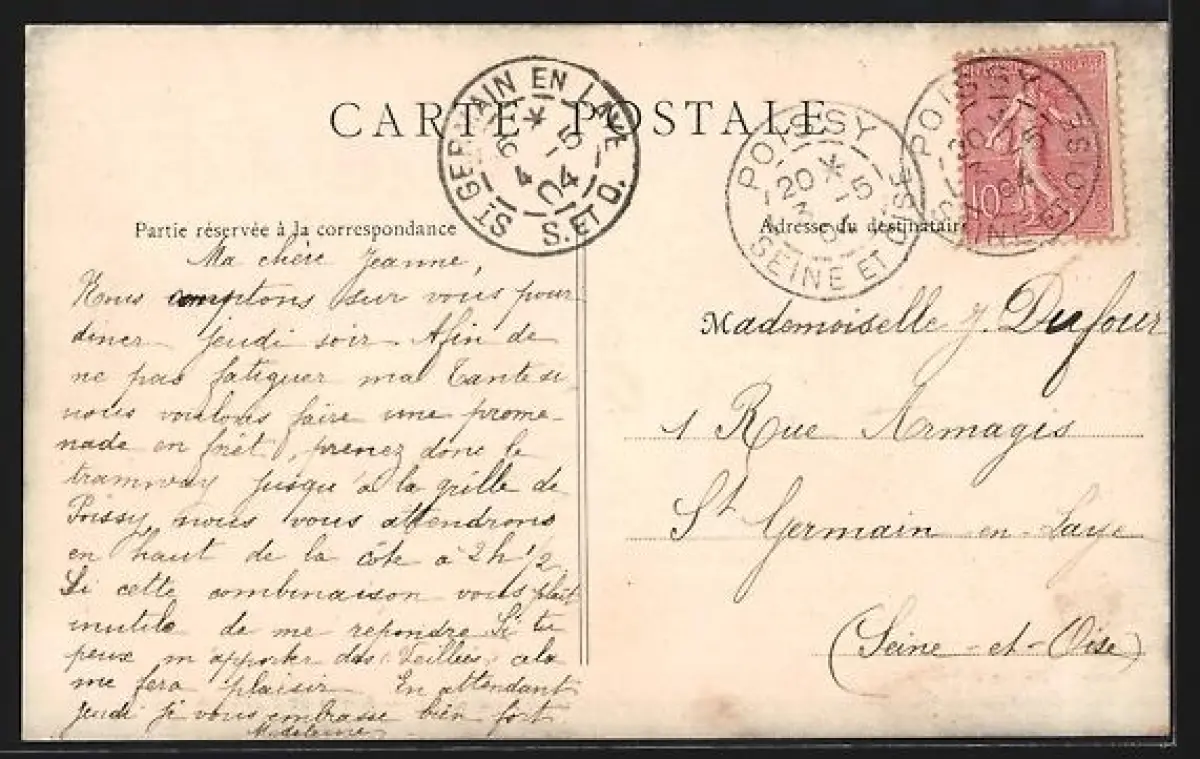 CARTE POSTALE
ST GERMAIN EN LAYE
6 * -5
4 04
S. ET O.
POISSY
20 * -5
3
SEINE ET OISE
POISSY
20 -5
04
SEINE ET OISE
10
Partie réservée à la correspondance
Adresse du destinataire
Ma chère Jeanne,
Nous comptons sur vous pour
diner jeudi soir. Afin de
ne pas fatiguer ma Tante si
nous voulons faire une prome-
nade en forêt, prenez donc le
tramway jusqu'à la grille de
Poissy, nous vous attendrons
en haut de la côte à 2h 1/2
Si cette combinaison vous plait
inutile de me repondre. Si tu
peux m'apporter des Veillées, cela
me fera plaisir. En attendant
jeudi je vous embrasse bien fort
Madeleine
Mademoiselle J. Dufour
1 Rue Armagis
St Germain en-Laye
(Seine-et-Oise)